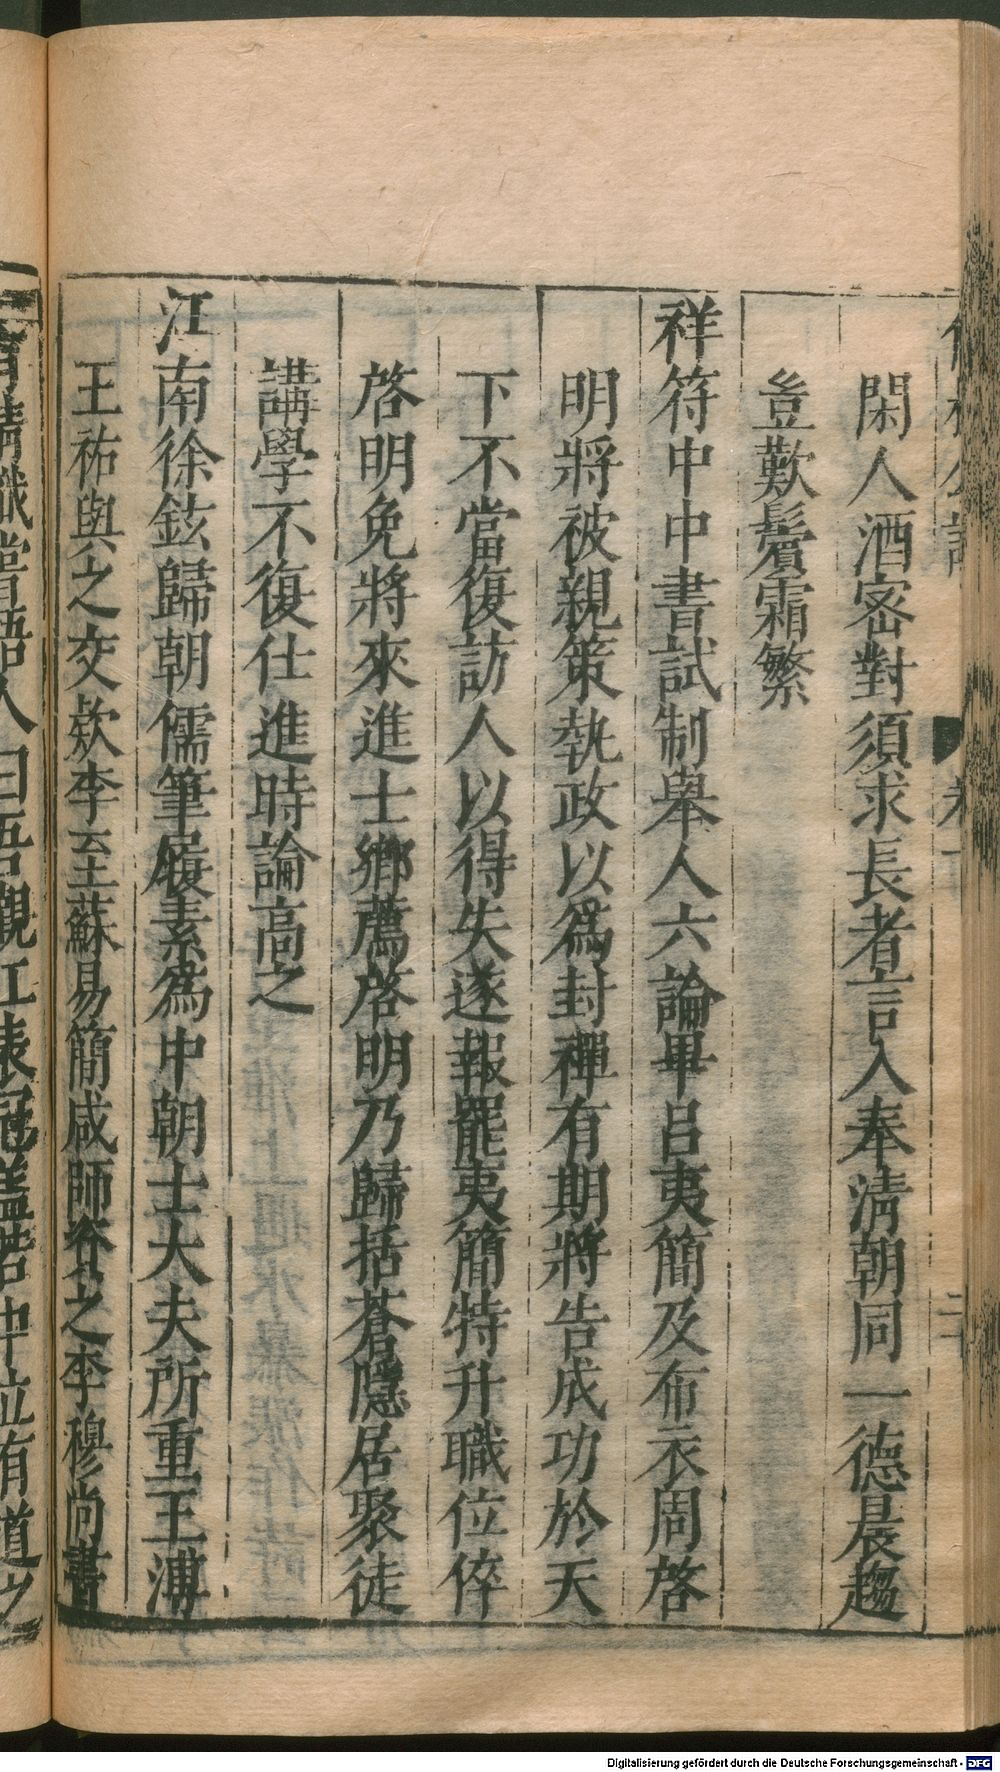 閑人酒密對須求長者言入奉淸朝同一德晨趨
豈歎鬢霜繁
祥符中中書試制舉人六論畢呂夷簡及布衣周啓
明將被親策執政以爲封禪有期將告成功於天
下不當復訪人以得失遂報罷夷簡特升職位倅
啓明免將來進士鄕薦啓明乃歸括蒼隱居聚徒
講學不復仕進時論高之
江南徐鉉歸朝儒筆履素爲中朝士大夫所重王溥
王祐與之交欵李至蘇易簡咸師資之李穆尚書
有淸識嘗語人曰吾觀江表冠蓋若中立有道之
Digitalisierung gefördert durch die Deutsche Forschungsgemeinschaft - DFG